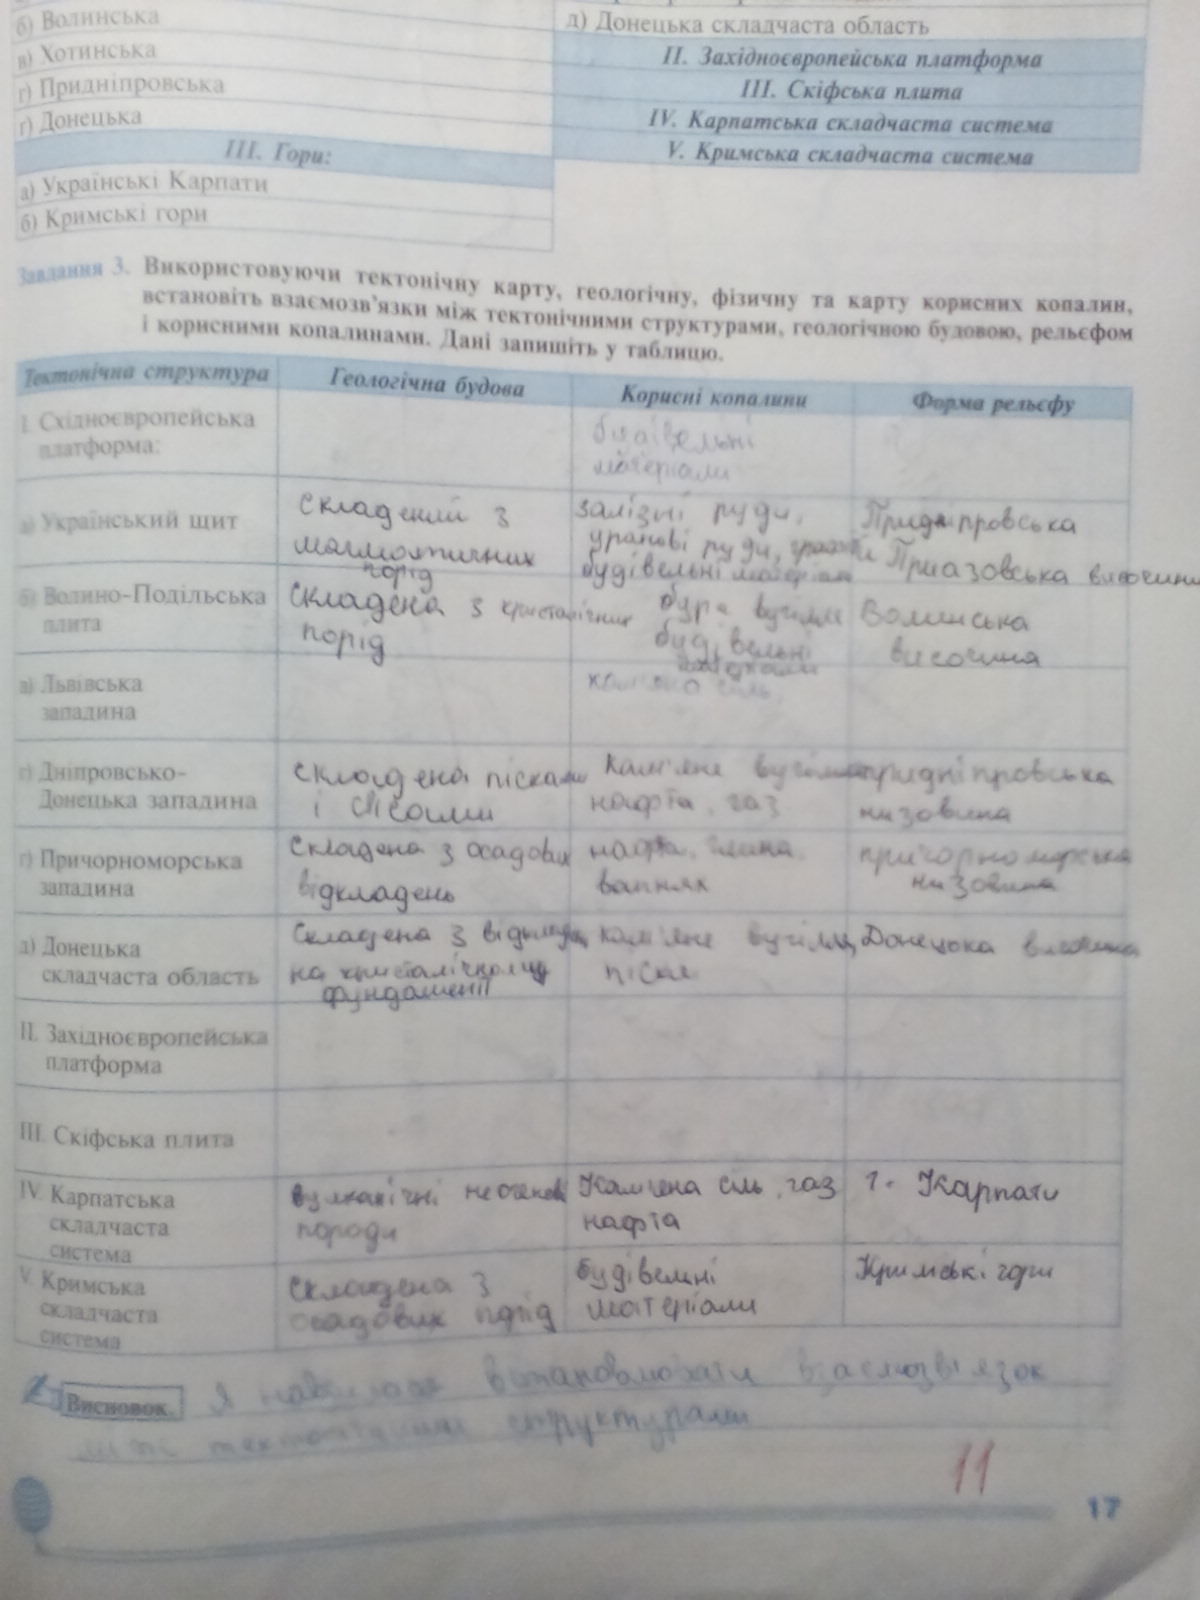 б) Волинська
в) Хотинська
г) Придніпровська
ґ) Донецька
III. Гори:
а) Українські Карпати
б) Кримські гори
д) Донецька складчаста область
II. Західноєвропейська платформа
III. Скіфська плита
IV. Карпатська складчаста система
V. Кримська складчаста система
Завдання 3. Використовуючи тектонічну карту, геологічну, фізичну та карту корисних копалин,
встановіть взаємозв'язки між тектонічними структурами, геологічною будовою, рельєфом
і корисними копалинами. Дані запишіть у таблицю.
Тектонічна структура
Геологічна будова
Корисні копалини
Форма рельєфу
I. Східноєвропейська
платформа:
будівельні
матеріали
а) Український щит
складений з
магматичних
порід
залізні руди,
уранові руди,
будівельні матеріали
Придніпровська
Приазовська височина
б) Волино-Подільська
плита
складена з кристалічних
порід
буре вугілля
будівельні
матеріали
Волинська
височина
в) Львівська
западина
кам'яна сіль
г) Дніпровсько-
Донецька западина
складена пісками
і лісами
кам'яне вугілля
нафта, газ
придніпровська
низовина
ґ) Причорноморська
западина
складена з осадових
відкладень
нафта, глина,
вапняк
причорноморська
низовина
д) Донецька
складчаста область
складена з
на кристалічному
фундаменті
кам'яне вугілля
піски
Донецька височина
II. Західноєвропейська
платформа
III. Скіфська плита
IV. Карпатська
складчаста
система
вулканічні неогенові
породи
Кам'яна сіль, газ
нафта
Карпати
V. Кримська
складчаста
система
складена з
осадових порід
будівельні
матеріали
Кримські гори
Висновок. Я встановлювати взаємозв'язок
між тектонічними структурами
11
17